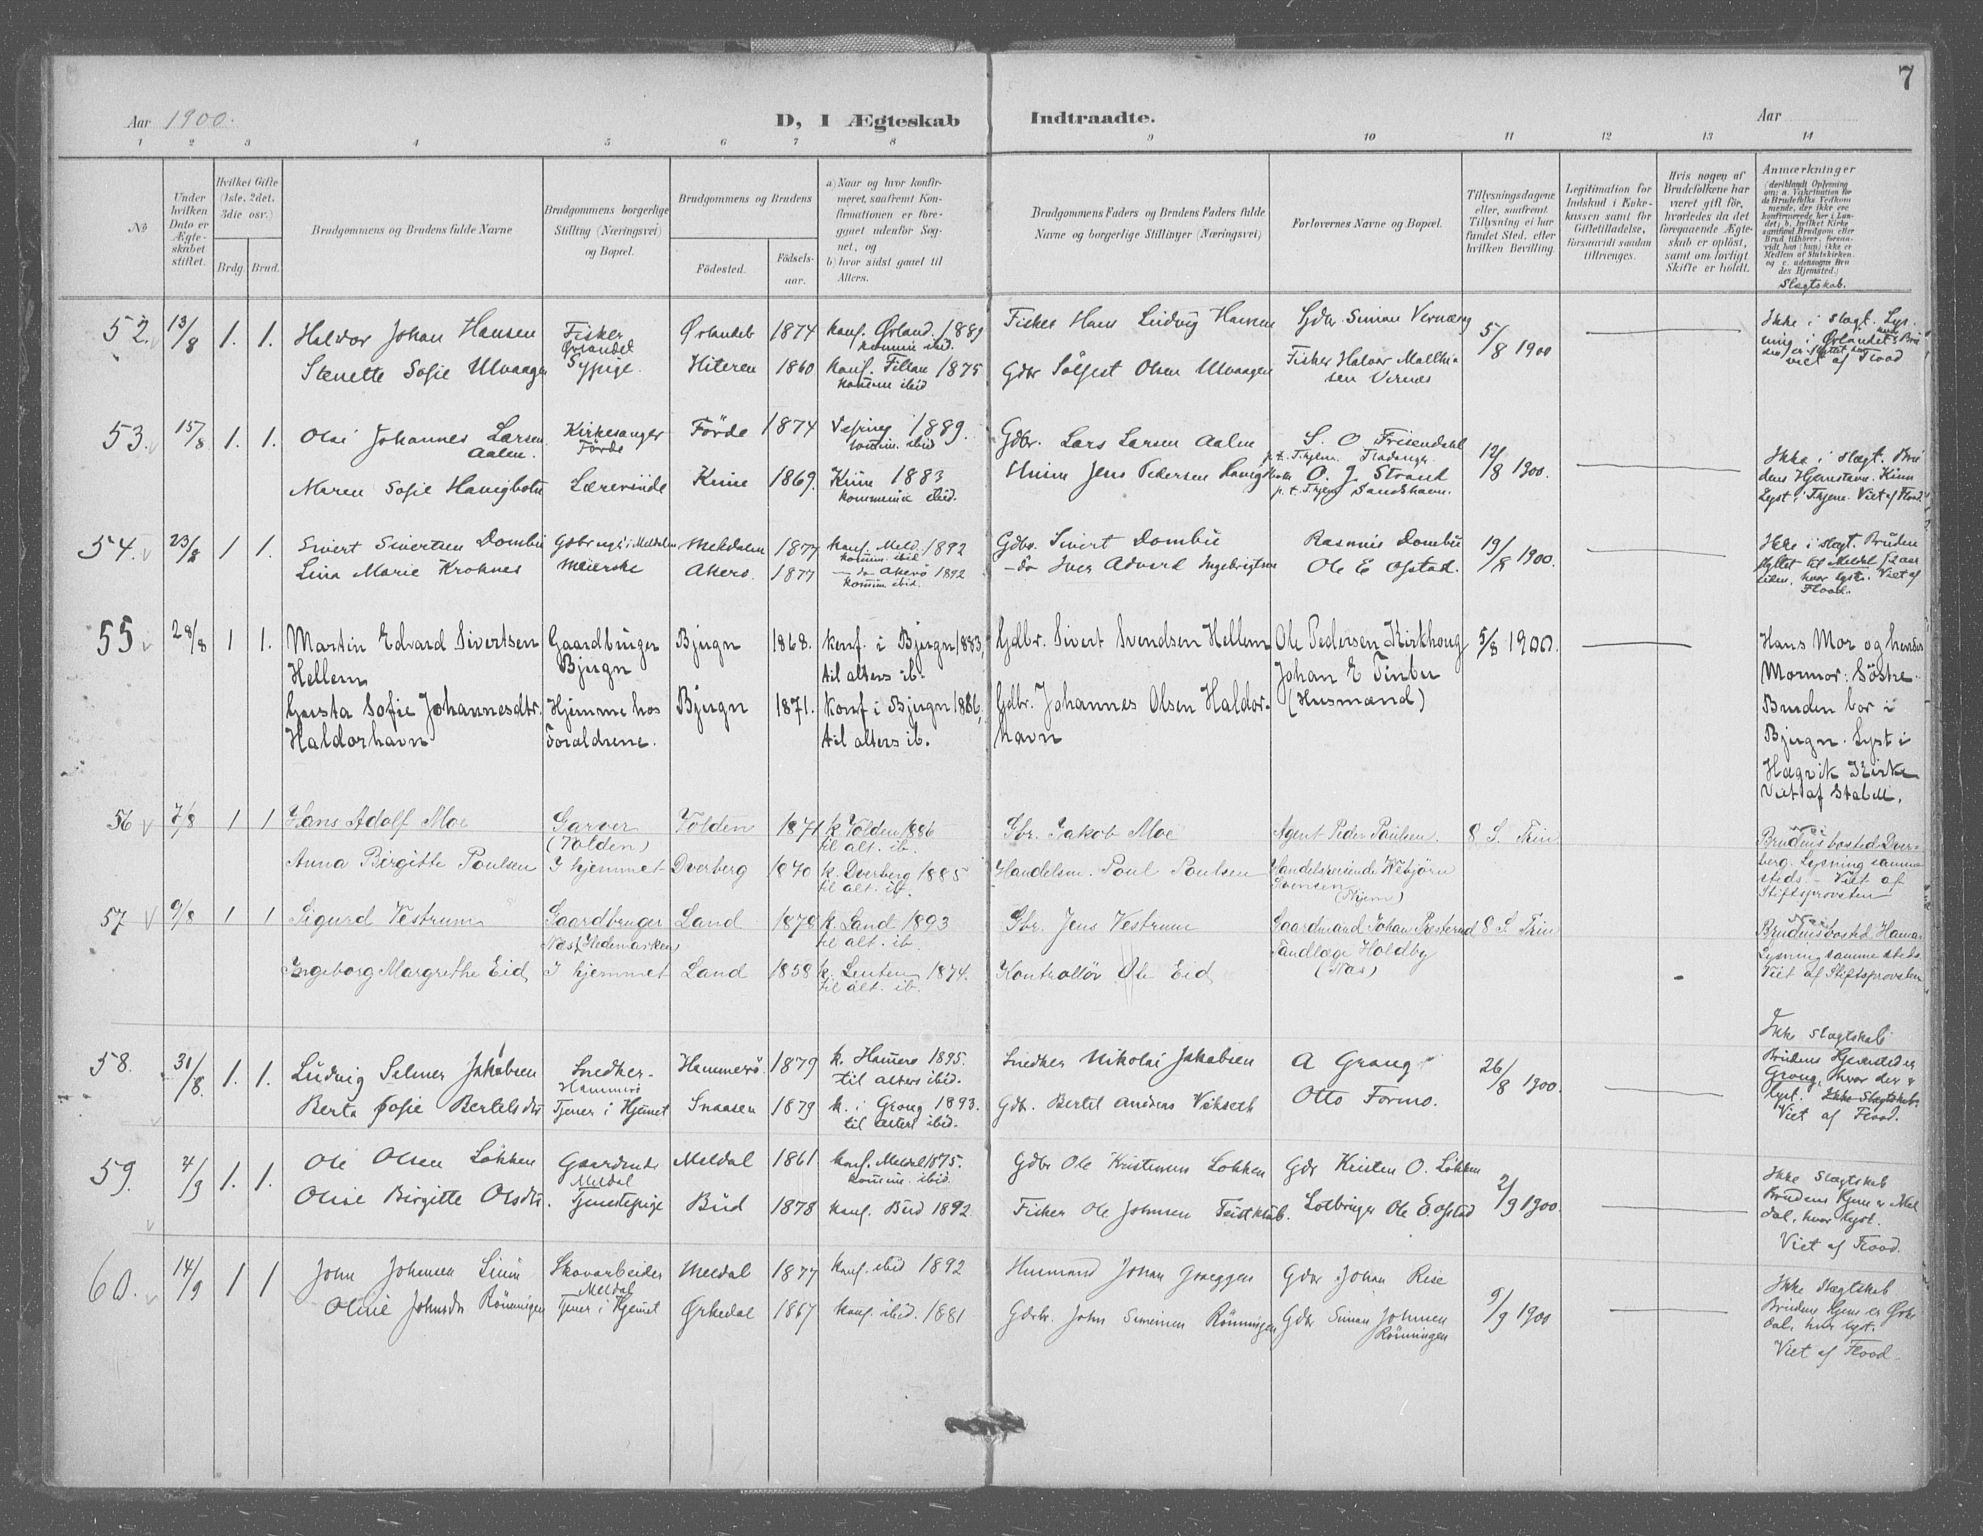 7
Aar 1900. D, I Ægteskab Indtraadte. Aar
1 2 3 4 5 6 7 8 9 10 11 12 13 14
No
Under hvilken Dato er Ægteskabet stiftet.
Hvilket Gifte (1ste, 2det, 3die osv.)
Brdg. Brud.
Brudgommens og Brudens fulde Navne
Brudgommens borgerlige Stilling (Næringsvei) og Bopæl.
Brudgommens og Brudens
Fødested. Fødselsaar.
a) Naar og hvor konfirmeret, saafremt Konfirmationen er foregaaet udenfor Sognet, og
b) hvor sidst gaaet til Alters.
Brudgommens Faders og Brudens Faders fulde Navne og borgerlige Stillinger (Næringsvei)
Forlovernes Navne og Bopæl.
Tillysningsdagene eller, saafremt Tillysning ei har fundet Sted, efter hvilken Bevilling
Legitimation for Indskud i Enkekassen samt for Giftetilladelse, forsaavidt saadan tiltrænges.
Hvis nogen af Brudefolkene har været gift før, hvorledes da det foregaaende Ægteskab er opløst, samt om lovligt Skifte er holdt.
Anmærkninger
Slægtskab.
52. 13/8 1. 1. Haldor Johan Hansen Fisker Ørlandet Ørlandet 1874 konf. Ørland. 1889 komm. ibid. Fisker Hans Ludvig Hansen Gdbr. Simon Vernæng 5/8 1900 Ikke i slægt. Lys-
Senette Sofie Ulvaagen Sypige. Hiteren 1860 konf. Fillan 1875 komm ibid Gdbr Sølfest Olsen Ulvaagen Fisker Halvor Mathisen Vernes
viet af Flood
53. 15/8 1. 1. Olai Johannes Larsen Aalen. Kirkesanger Förde Förde 1874 Vefring 1889. komm. ibid Gdbr. Lars Larsen Aalen S. O. Frisendahl p.t. Thjem. Fladanger 12/8 1900. Ikke i slægt. Bru-
Maren Sofie Havigbotn Lærerinde Kinn 1869. Kinn 1883 kommun. ibid. Jens Pedersen Havigbotn O. J. Strand p.t. Thjem Sandshavn. dens Hjemstavn. Kinn
Lyst i Thjem. Viet af Flood.
54. 23/8 1 1. Sivert Sivertsen Dombu Gdbr. i Meldalen Meldalen 1877 konf. Meld. 1892 komm ibid Gdbr. Sivert Dombu Rasmus Dombu 19/8 1900. Ikke i slægt. Bruden
Lina Marie Krohnes Meierske Akerø. 1877 – do Akerø 1892 komm ibid. – do Iver Edverd Ingebrigtsen Ole E Ofstad. flyttet til Meldal
hvor lyst. Viet af
Flood.
55 28/8 1 1. Martin Edvard Sivertsen Hellem Gaardbruger Bjugn Bjugn 1868. konf. i Bjugn 1883, til alters ib. Gdbr. Sivert Svendsen Hellem Ole Pedersen Kirkhoug 5/8 1900. Hans Mor og hendes
Gusta Sofie Johannesdtr. Haldorhavn Hjemme hos Foraldrene. Bjugn 1871. Konf i Bjugn 1886, til alters ib. Gdbr. Johannes Olsen Haldorhavn Johan E Tinbu (Husmand) Mormor: Söstre.
Bruden bor i
Bjugn. Lyst i
Hegvik Kirke
Viet af Stabell.
56 7/8 1 1 Hans Adolf Moe Garver (Volden) Volden 1871 k Volden 1886 til alt. ib. Gbr. Jakob Moe Agent Peder Paulsen. 8 S. Trin Brudens bosted Dver-
Anna Birgitte Paulsen I hjemmet Dverberg 1870 k. Dverberg 1885 til alt. ib. Handelsm. Poul Paulsen Handelsreisende Vebjörn Svensen (Thjem) berg. Lysning samme-
steds – Viet af
Stiftsprovsten
57 9/8 1 1 Sigurd Vestrum Gaardbruger Næs (Hedemarken) Land 1878 k. Land 1893 til alt. ib. Gbr. Jens Vestrum Gaardmand Johan Presterud 8 S. Trin Brudens bosted Hamar
Ingeborg Margrethe Eid I hjemmet Land 1858 k. Leuten 1874. til alt. ib. Kontrollör Ole Eid Tandlæge Holdby (Næs) Lysning samme steds.
Viet af Stiftsprovsten
58. 31/8. 1. 1. Ludvig Selmer Jakobsen Snedker. Hammerø Hammerø. 1879 k. Hamerø 1895. til alters ibid. Snedker Nikolai Jakobsen A Grong 26/8 1900. Ikke slægtskab
Berta Sofie Bertelsdtr Tjener i Hjemet Snaasen 1879 k. i Grong 1893. til alters ibid. Gdbr. Bertel Andreas Vekseth Otto Formo. Brudens Hjemsted er
Grong, hvor der er
lyst. Ikke slægtskab.
Viet af Flood.
59. 4/9 1. 1. Ole Olsen Løkken Gaardmd Meldal Meldal 1861 konf. Meldal 1875. komm. ibid. Gdbr Ole Kristensen Løkken Gdr Kristen O. Løkken 2/9 1900. Ikke slægtskab
Oline Birgitte Olsdtr. Tjenestepige Bud 1878 konf. Bud 1892 Fisker Ole Johnsen Ole E. Ofstad Brudens Hjem er Mel-
dal, hvor lyst.
Viet af Flood.
60. 14/9 1 1 John Johnsen Skovarbeider Meldal Meldal 1877 konf. ibid 1892 Husmand Johan Gdbr Johan Rise 9/9 1900 Ikke slægtskab
Oline Johnsdr Rønningen Tjener i Hjemet Ørkedal 1867 konf. ibid. 1881 Gdbr. John Simensen Rønningen Gdbr Simon Johnsen Rønningen Brudens hjem er Ørke-
dal. hvor lyst.
Viet af Flood.